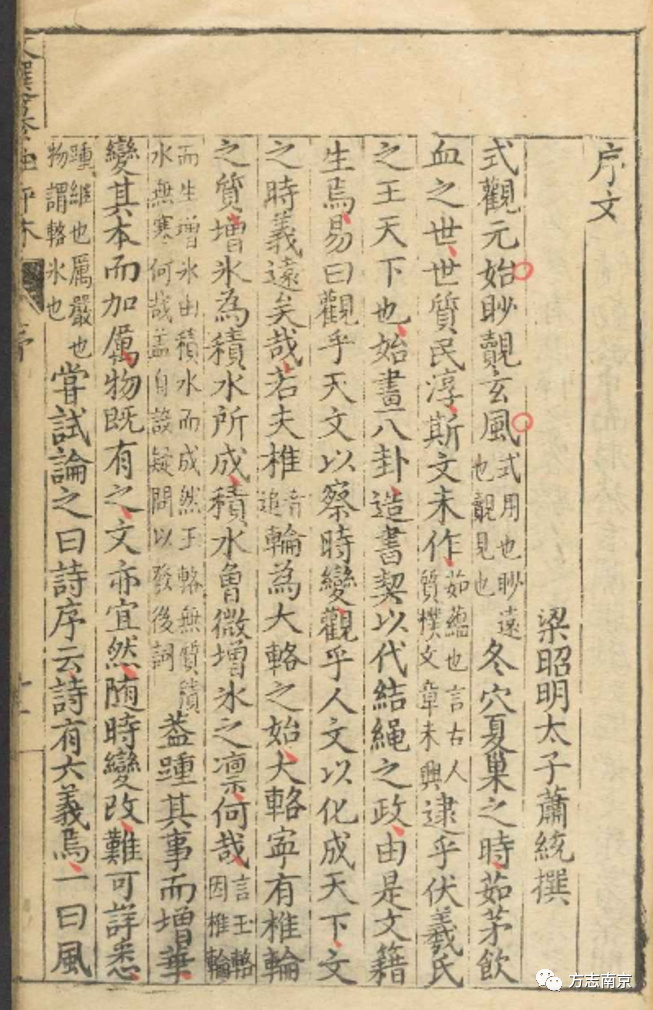 序文
梁昭明太子蕭統撰
式觀元始眇覿玄風式用也眇遠也覿見也冬穴夏巢之時茹茅飲
血之世世質民淳斯文未作茹蘊也言古人質樸文章未興逮乎伏羲氏
之王天下也始畫八卦造書契以代結繩之政由是文籍
生焉易曰觀乎天文以察時變觀乎人文以化成天下文
之時義遠矣哉若夫椎音追輪為大輅之始大輅寧有椎輪
之質增氷為積水所成積水曾微增氷之凛何哉言玉輅因椎輪
而生增氷由積水而成然玉輅無質積水無寒何哉葢自設疑問以發後詞葢踵其事而增華
變其本而加厲物既有之文亦宜然随時變改難可詳悉
踵継也厲嚴也物謂輅氷也嘗試論之曰詩序云詩有六義焉一曰風
方志南京